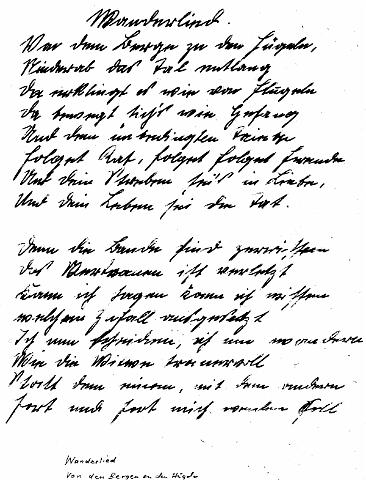 Wanderlied.
Von dem Berge zu den Hügeln,
Niederab das Tal entlang
Da erklingt es wie von Flügeln
Da bewegt sich's wie Gesang
Und dem unbedingten Triebe
folget Rat, folget folget Freude
Und dein Streben sei's in Liebe,
Und dein Leben sei die Tat.
Denn die Bande sind zerrissen
das Vertrauen ist verletzt
Kann ich sagen kann ich wissen
welchem Zufall ausgesetzt
Ich nun scheiden, ich nun wandern
Wie die Witwe trauervoll
Statt dem einen, mit dem andern
fort und fort mich wenden soll
Wanderlied
Von den Bergen den Hügeln